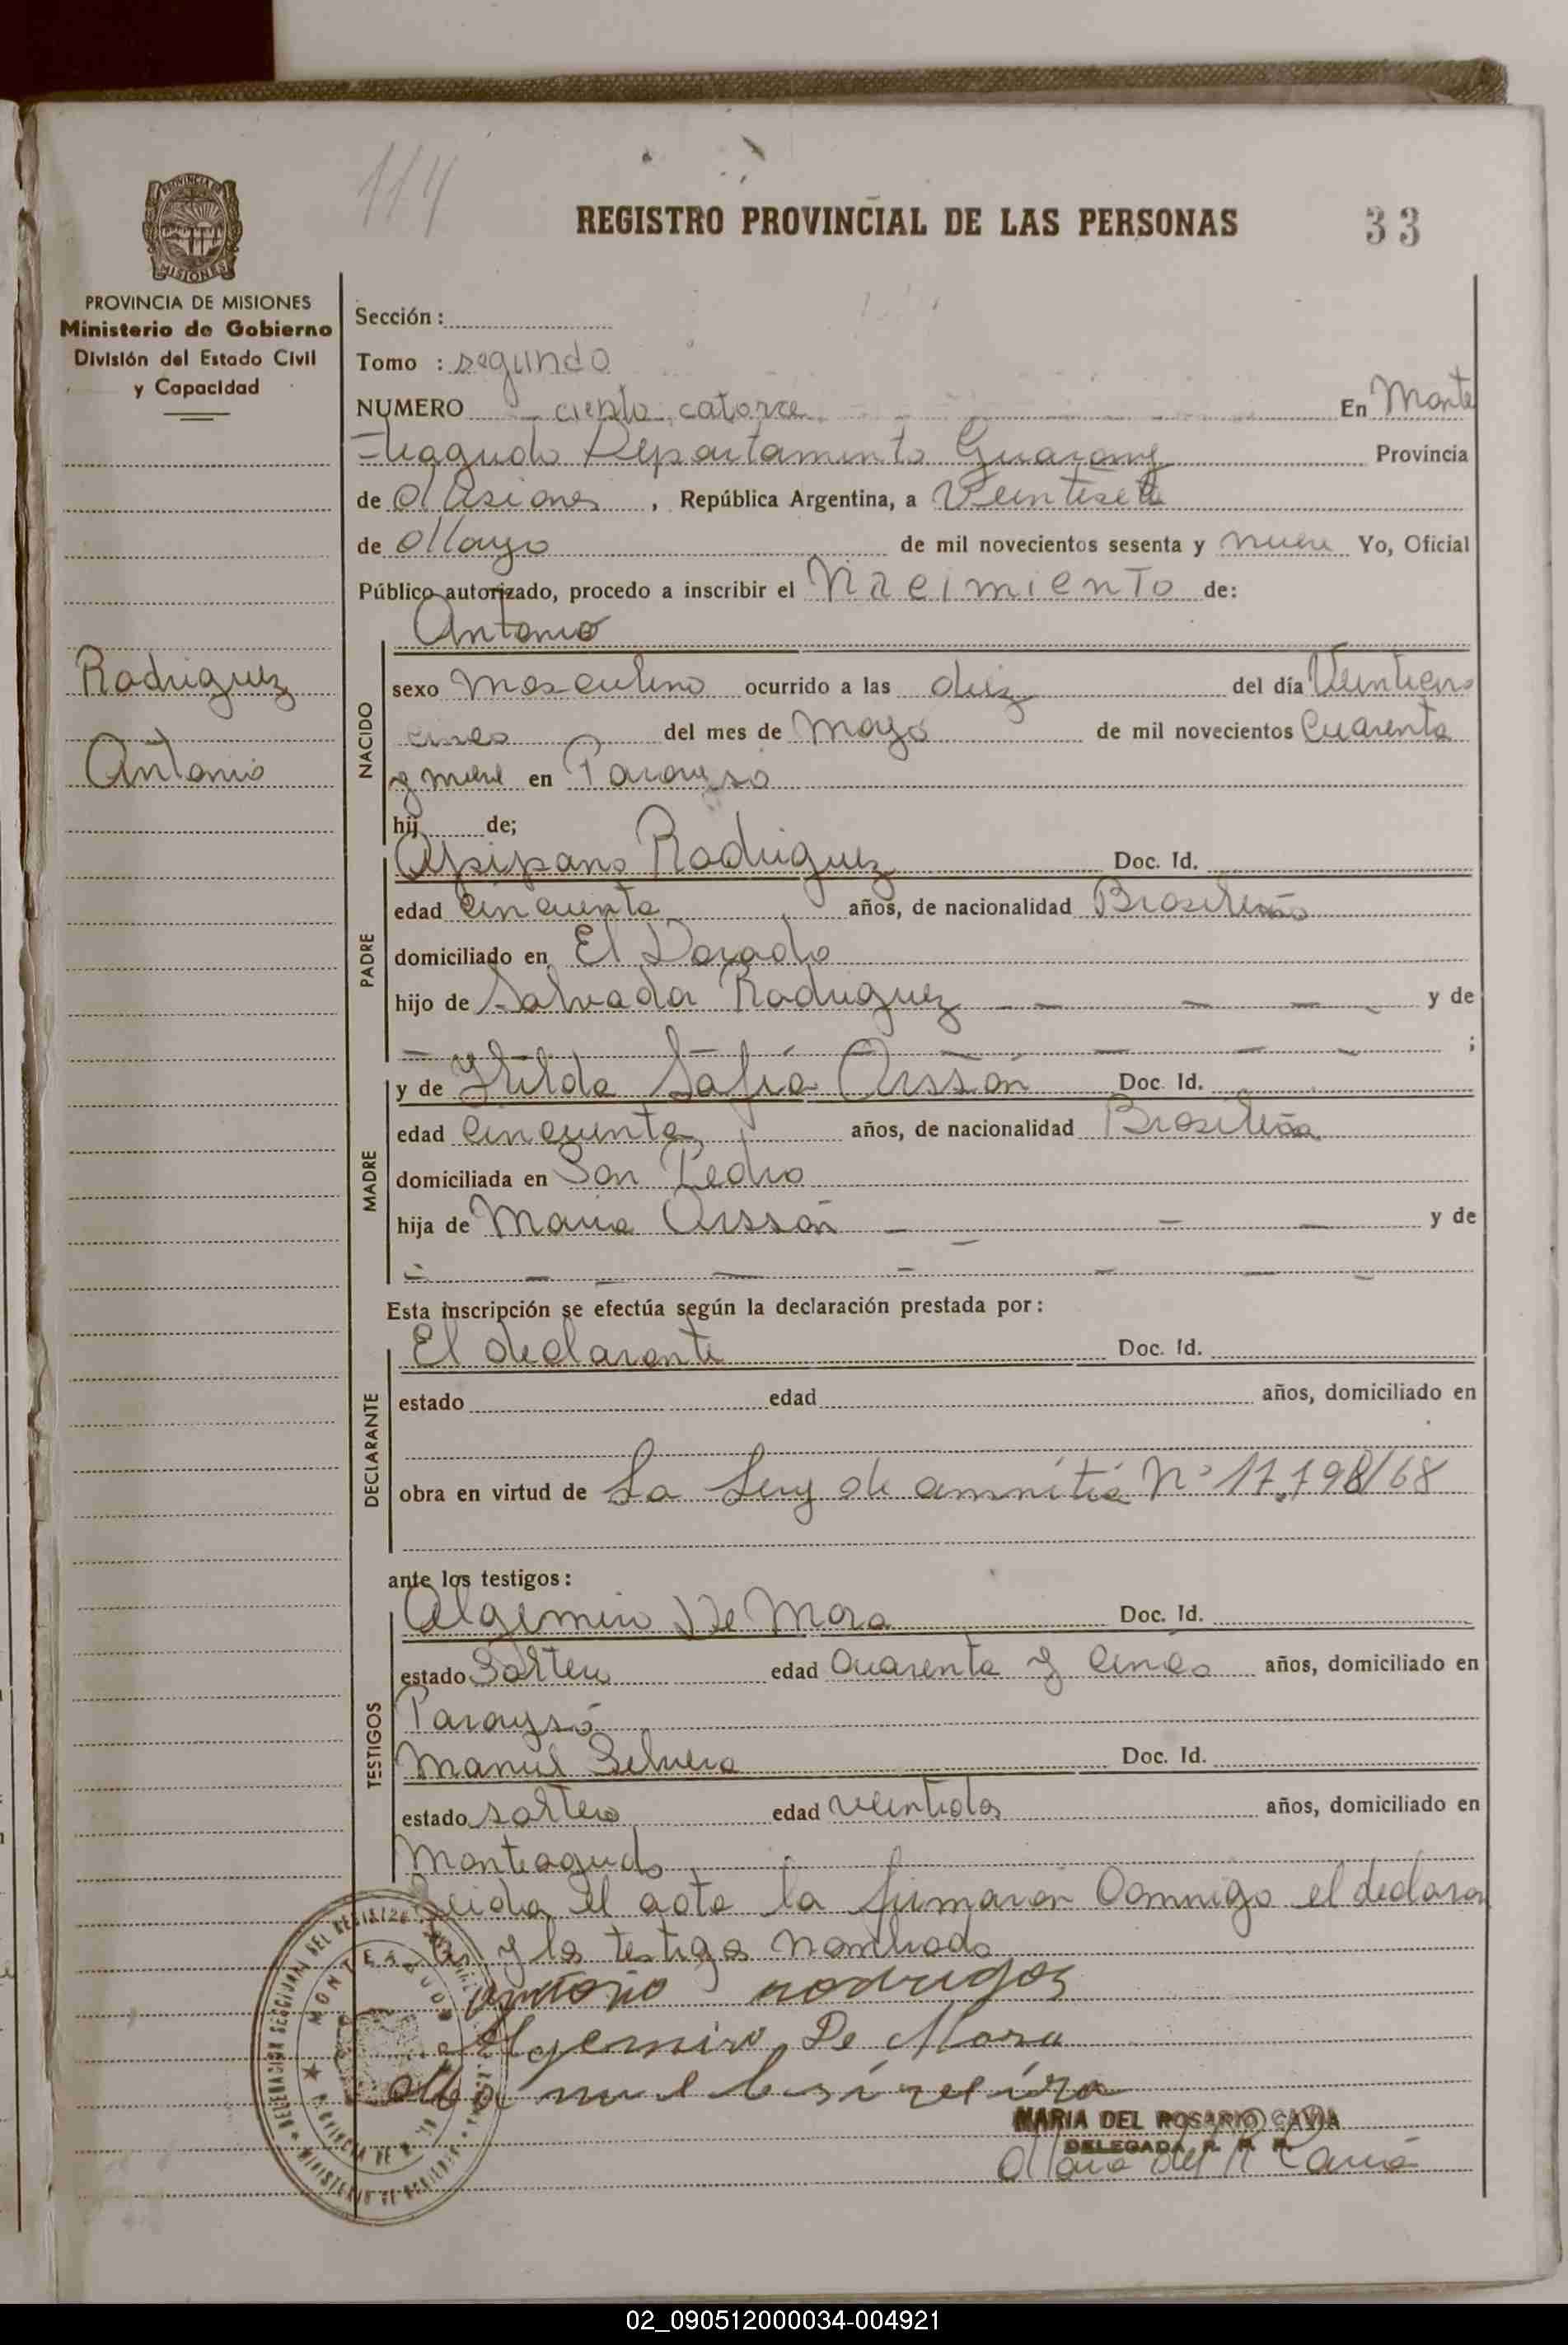 114
REGISTRO PROVINCIAL DE LAS PERSONAS
33
PROVINCIA DE MISIONES
MISIONES
PROVINCIA DE MISIONES
Ministerio de Gobierno
División del Estado Civil
y Capacidad
Rodriguez
Antonio
Sección :
Tomo : segundo
NUMERO ciento catorce En Monte
agudo Departamento Guarany Provincia
de Misiones , República Argentina, a Veintisete
de Mayo de mil novecientos sesenta y nueve Yo, Oficial
Público autorizado, procedo a inscribir el Nacimiento de:
Antonio
NACIDO
sexo Masculino ocurrido a las diez del día Veinticin
cinco del mes de Mayo de mil novecientos Cuarenta
y nueve en Parayso
hij de;
PADRE
Rodriguez Doc. Id.
edad Cincuenta años, de nacionalidad Brasileño
domiciliado en El Dorado
hijo de Salvador Rodriguez y de
;
MADRE
y de Hilda Sofia Orssón Doc. Id.
edad Cincuenta años, de nacionalidad Brasileña
domiciliada en San Pedro
hija de Maria Orssón y de
Esta inscripción se efectúa según la declaración prestada por :
DECLARANTE
El declarante Doc. Id.
estado edad años, domiciliado en
obra en virtud de La Ley de amnitia Nº 17.198/68
ante los testigos :
TESTIGOS
Algemiro De Mora Doc. Id.
estado Soltero edad Cuarenta y Cinco años, domiciliado en
Parayso
Manuel Doc. Id.
estado soltero edad veintidos años, domiciliado en
Monteagudo
Leida el acta la firmaron Conmigo el declaran
te y los testigos nombrado
antonio rodrigos
Algemiro De Mora
MARIA DEL ROSARIO CAVIA
DELEGADA R. P. P.
Maria del R Cavia
02_090512000034-004921